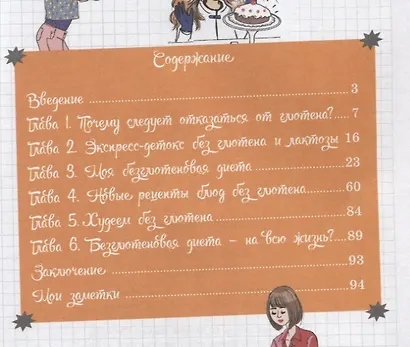 Содержание
Введение ........................................................ 3
Глава 1. Почему следует отказаться от глютена?.... 7
Глава 2. Экспресс-детокс без глютена и лактозы 16
Глава 3. Моя безглютеновая диета ...................... 23
Глава 4. Новые рецепты блюд без глютена.......... 60
Глава 5. Худеем без глютена ............................... 84
Глава 6. Безглютеновая диета – на всю жизнь?.. 89
Заключение .................................................... 93
Мои заметки .................................................. 94